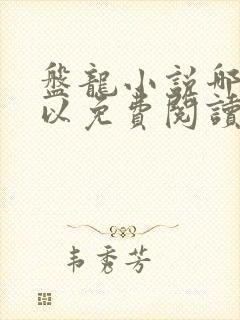 盤龍小説哪
以免費閱讀
韦秀芳